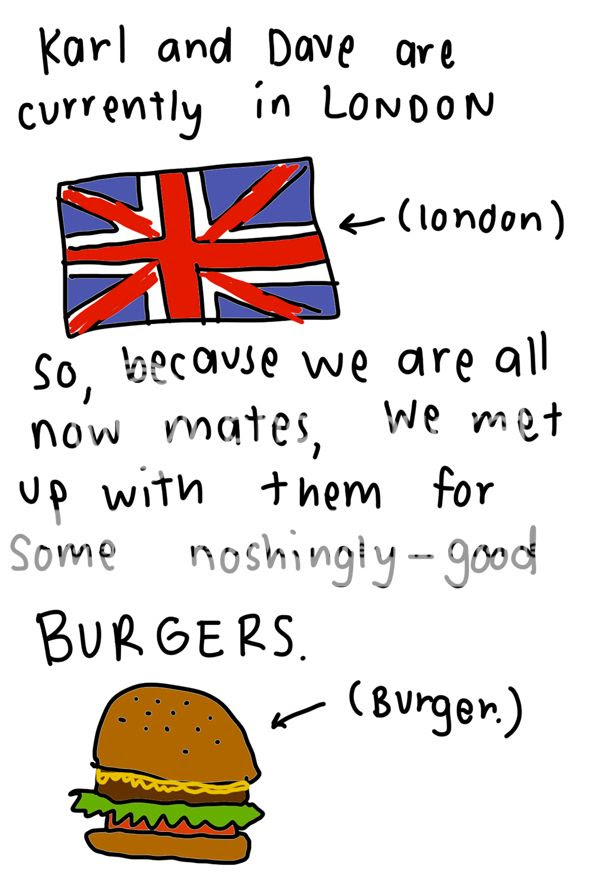 Karl and Dave are
currently in LONDON
(london)
So, because we are all
now mates, We met
up with them for
some noshingly-good
BURGERS.
(Burger.)